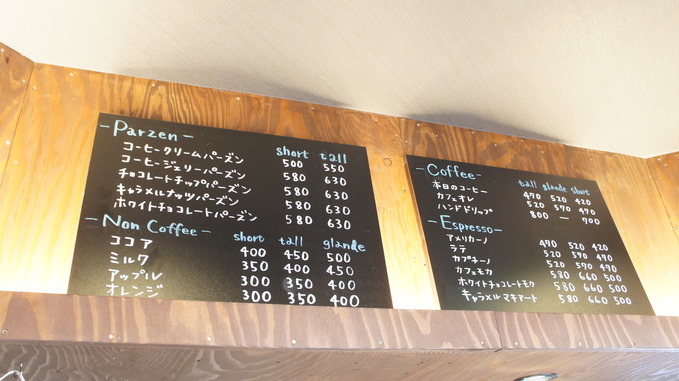 -Parzen-
short tall
コーヒークリームパーズン 500 550
コーヒージェリーパーズン 580 630
チョコレートチップパーズン 580 630
キャラメルナッツパーズン 580 630
ホワイトチョコレートパーズン 580 630
-Non Coffee- short tall glande
ココア 400 450 500
ミルク 350 400 450
アップル 300 350 400
オレンジ 300 350 400
-Coffee-
tall glande short
本日のコーヒー 470 520 420
カフェオレ 520 570 470
ハンドドリップ 800 — 700
-Espresso-
アメリカーノ 470 520 420
ラテ 520 570 470
カプチーノ 520 570 470
カフェモカ 580 660 500
ホワイトチョコレートモカ 580 660 500
キャラメルマキアート 580 660 500